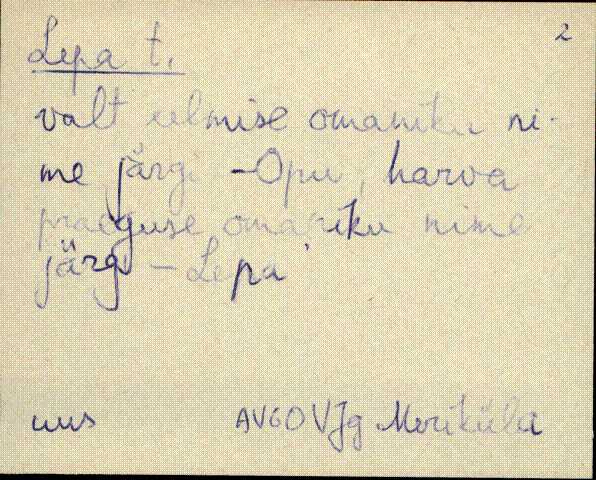 2
Lepa t.
valt eelmise omaniku ni-
me järgi - Opu, harva
praeguse omaniku nime
järgi - Lepa
uus AVGO VJg Meriküla